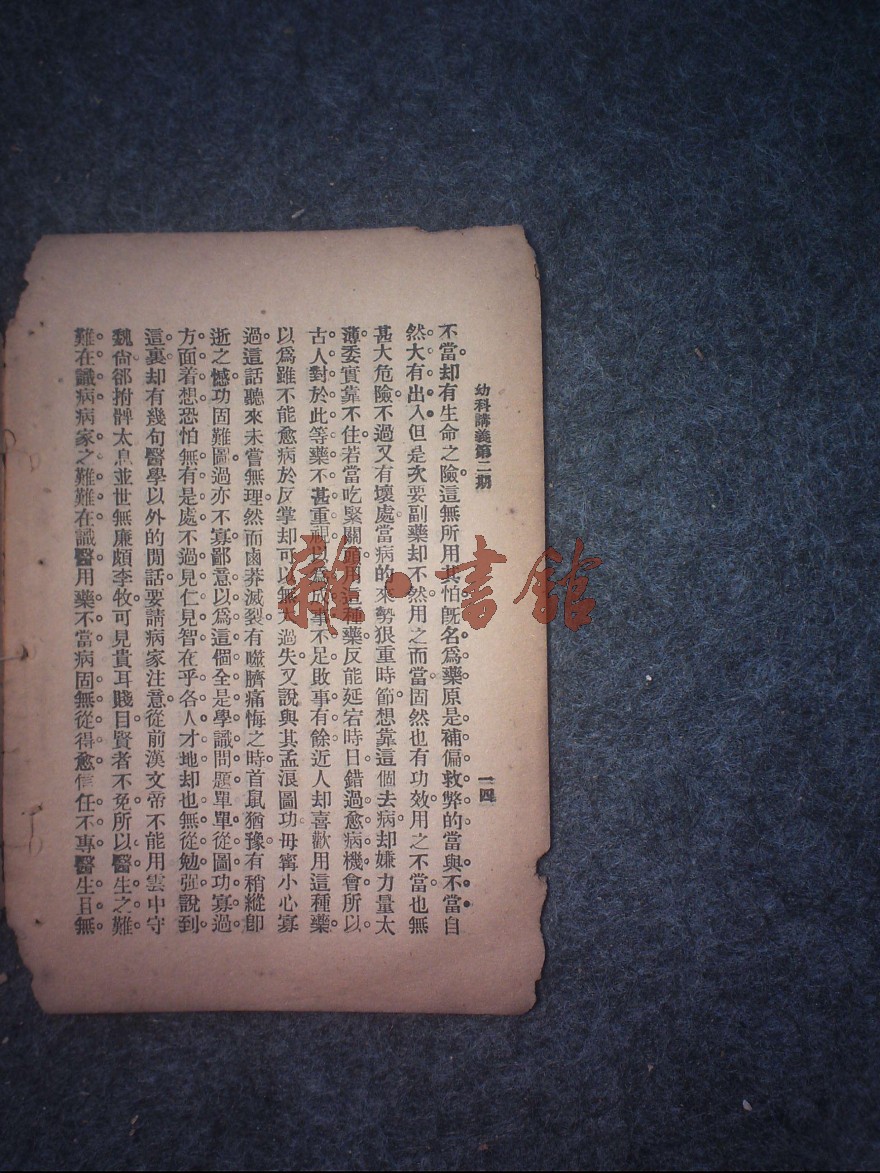 幼科講義第二期
一四
不當却有生命之險這無所用其怕旣名爲藥原是補偏救弊的當與不當自
然大有出入但是次要副藥却不然用之而當固然也有功效用之不當也無
甚大危險不過又有壞處當病的來勢狠重時節想靠這個去病却嫌力量太
薄委實靠不住若當吃緊關頭用這種藥反能延宕時日錯過愈病機會所以
古人對於此等藥不甚重視以爲成事不足敗事有餘近人却喜歡用這種藥
以爲雖不能愈病於反掌却可以無大過失又說與其孟浪圖功毋寧小心寡
過這話聽來未嘗無理然而鹵莽滅裂有噬臍痛悔之時首鼠猶豫有稍縱卽
逝之憾功固難圖過亦不寡鄙意以爲這個全是學識問題單單從圖功寡過
方面着想恐怕無有是處不過見仁見智在乎各人才地却也無從勉强說到
這裏却有幾句醫學以外的閒話要請病家注意從前漢文帝不能用雲中守
魏尙卻拊髀太息並世無廉頗李牧可見貴耳賤目賢者不免所以醫生之難
難在識病病家之難難在識醫用藥不當病固無從得愈信任不專醫生且無
雜·書館